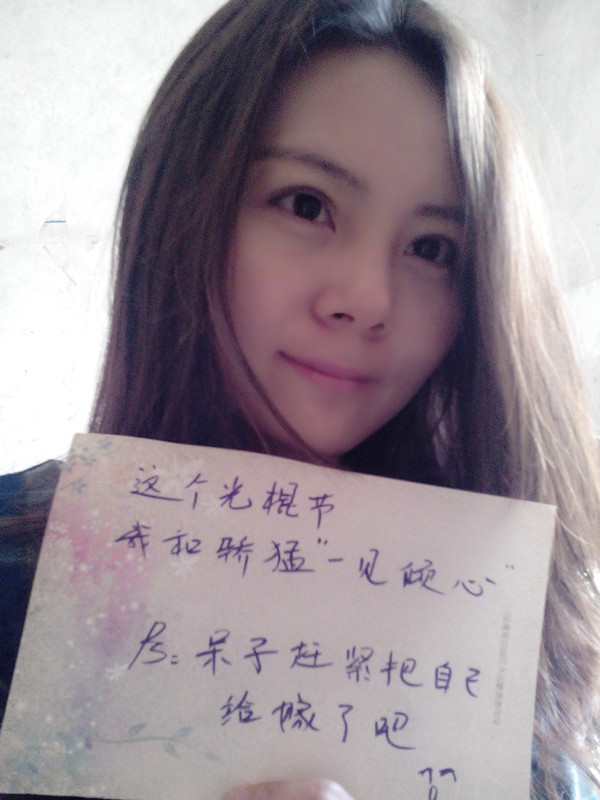 这个光棍节
我和骄猛“一见倾心”
Ps:呆子赶紧把自己
给嫁了吧